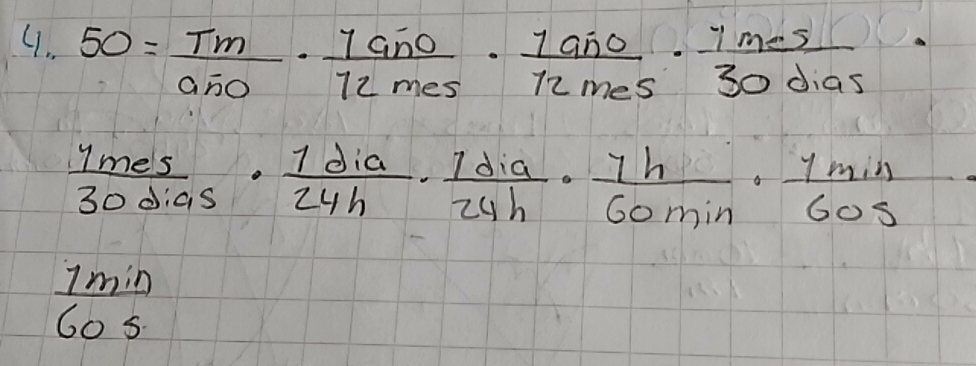 4. 50 = Tm/año · 1 año/12 mes · 1 año/12 mes · 1 mes/30 dias ·
1 mes/30 dias · 1 dia/24h · 1 dia/24h · 1 h/60 min · 1 min/60 s ·
1 min/60 s